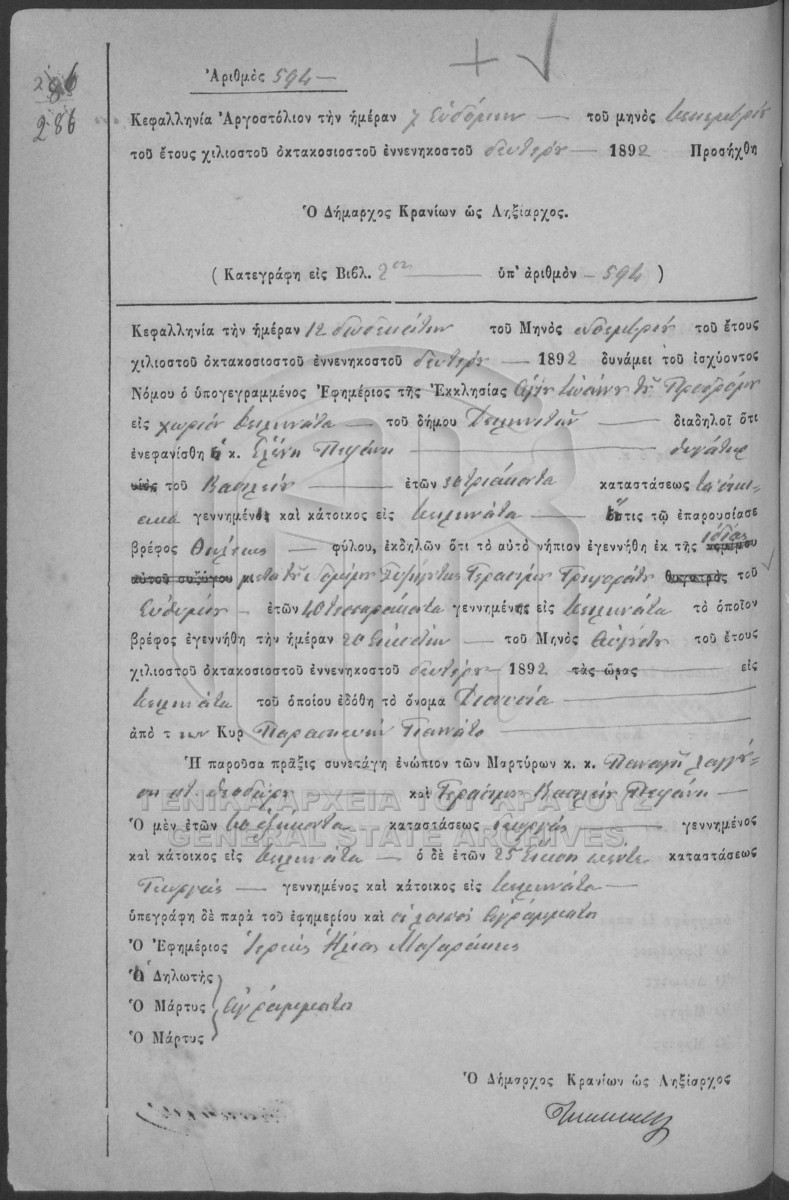 286
286
Ἀριθμὸς 594
Κεφαλληνία Ἀργοστόλιον τὴν ἡμέραν 7 τοῦ μηνὸς
τοῦ ἔτους χιλιοστοῦ ὀκτακοσιοστοῦ ἐννενηκοστοῦ δευτέρου 1892 Προσήχθη
Ὁ Δήμαρχος Κρανίων ὡς Ληξίαρχος.
( Κατεγράφη εἰς Βιβλ. 2ον ὑπ' ἀριθμὸν 594 )
Κεφαλληνία τὴν ἡμέραν 12 δωδεκάτην τοῦ Μηνὸς τοῦ ἔτους
χιλιοστοῦ ὀκτακοσιοστοῦ ἐννενηκοστοῦ δευτέρου 1892 δυνάμει τοῦ ἰσχύοντος
Νόμου ὁ ὑπογεγραμμένος Ἐφημέριος τῆς Ἐκκλησίας Ἁγίου Ἰωάννου τοῦ Προδρόμου
εἰς χωρίον τοῦ δήμου διαδηλοῖ ὅτι
ἐνεφανίσθη ἡ κ. Ἑλένη θυγάτηρ
υἱὸς τοῦ Βασιλείου ἐτῶν 30 τριάκοντα καταστάσεως
γεννημένος καὶ κάτοικος εἰς ἥτις τῷ ἐπαρουσίασε
βρέφος θήλεως φύλου, ἐκδηλῶν ὅτι τὸ αὐτὸ νήπιον ἐγεννήθη ἐκ τῆς ἰδίας νομίμου
αὐτοῦ συζύγου μετὰ τοῦ νομίμου συζύγου της Γερασίμου Γρηγοράτου θυγατρὸς τοῦ
Εὐθυμίου ἐτῶν 40 τεσσαράκοντα γεννημένης εἰς τὸ ὁποῖον
βρέφος ἐγεννήθη τὴν ἡμέραν 20 εἰκοστὴν τοῦ Μηνὸς Αὐγούστου τοῦ ἔτους
χιλιοστοῦ ὀκτακοσιοστοῦ ἐννενηκοστοῦ δευτέρου 1892 τὰς ὥρας εἰς
τοῦ ὁποίου ἐδόθη τὸ ὄνομα Διονυσία
ἀπὸ τ Κυρ Παρασκευὴν
Ἡ παροῦσα πρᾶξις συνετάγη ἐνώπιον τῶν Μαρτύρων κ. κ. Παναγῆ
καὶ Γερασίμου Βασιλείου
Ὁ μὲν ἐτῶν 60 ἑξήκοντα καταστάσεως γεωργὸς γεννημένος
καὶ κάτοικος εἰς ὁ δὲ ἐτῶν 25 εἴκοσι πέντε καταστάσεως
Γεωργὸς γεννημένος καὶ κάτοικος εἰς
ὑπεγράφη δὲ παρὰ τοῦ ἐφημερίου καὶ οἱ λοιποὶ ἀγράμματοι
Ὁ Ἐφημέριος Ἱερεὺς Ἠλίας
Ἡ Δηλωτὴς
Ὁ Μάρτυς ἀγράμματοι
Ὁ Μάρτυς
Ὁ Δήμαρχος Κρανίων ὡς Ληξίαρχος
ΓΕΝΙΚΑ ΑΡΧΕΙΑ ΤΟΥ ΚΡΑΤΟΥΣ
GENERAL STATE ARCHIVES